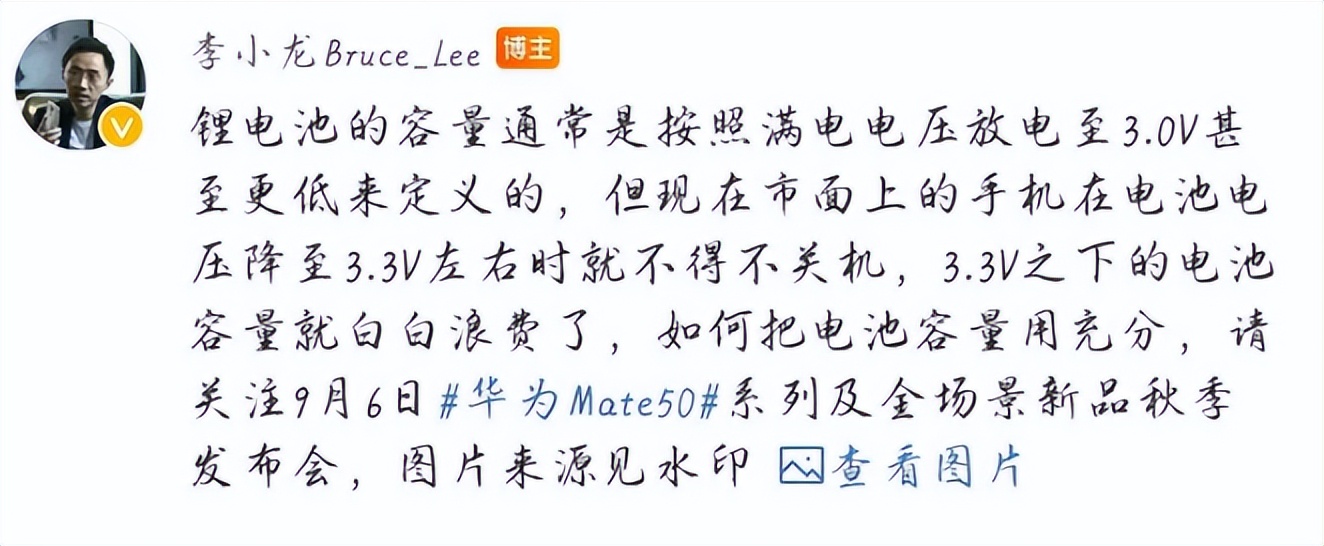 李小龙Bruce_Lee 博主
锂电池的容量通常是按照满电电压放电至3.0V甚
至更低来定义的，但现在市面上的手机在电池电
压降至3.3V左右时就不得不关机，3.3V之下的电池
容量就白白浪费了，如何把电池容量用充分，请
关注9月6日#华为Mate50#系列及全场景新品秋季
发布会，图片来源见水印 查看图片